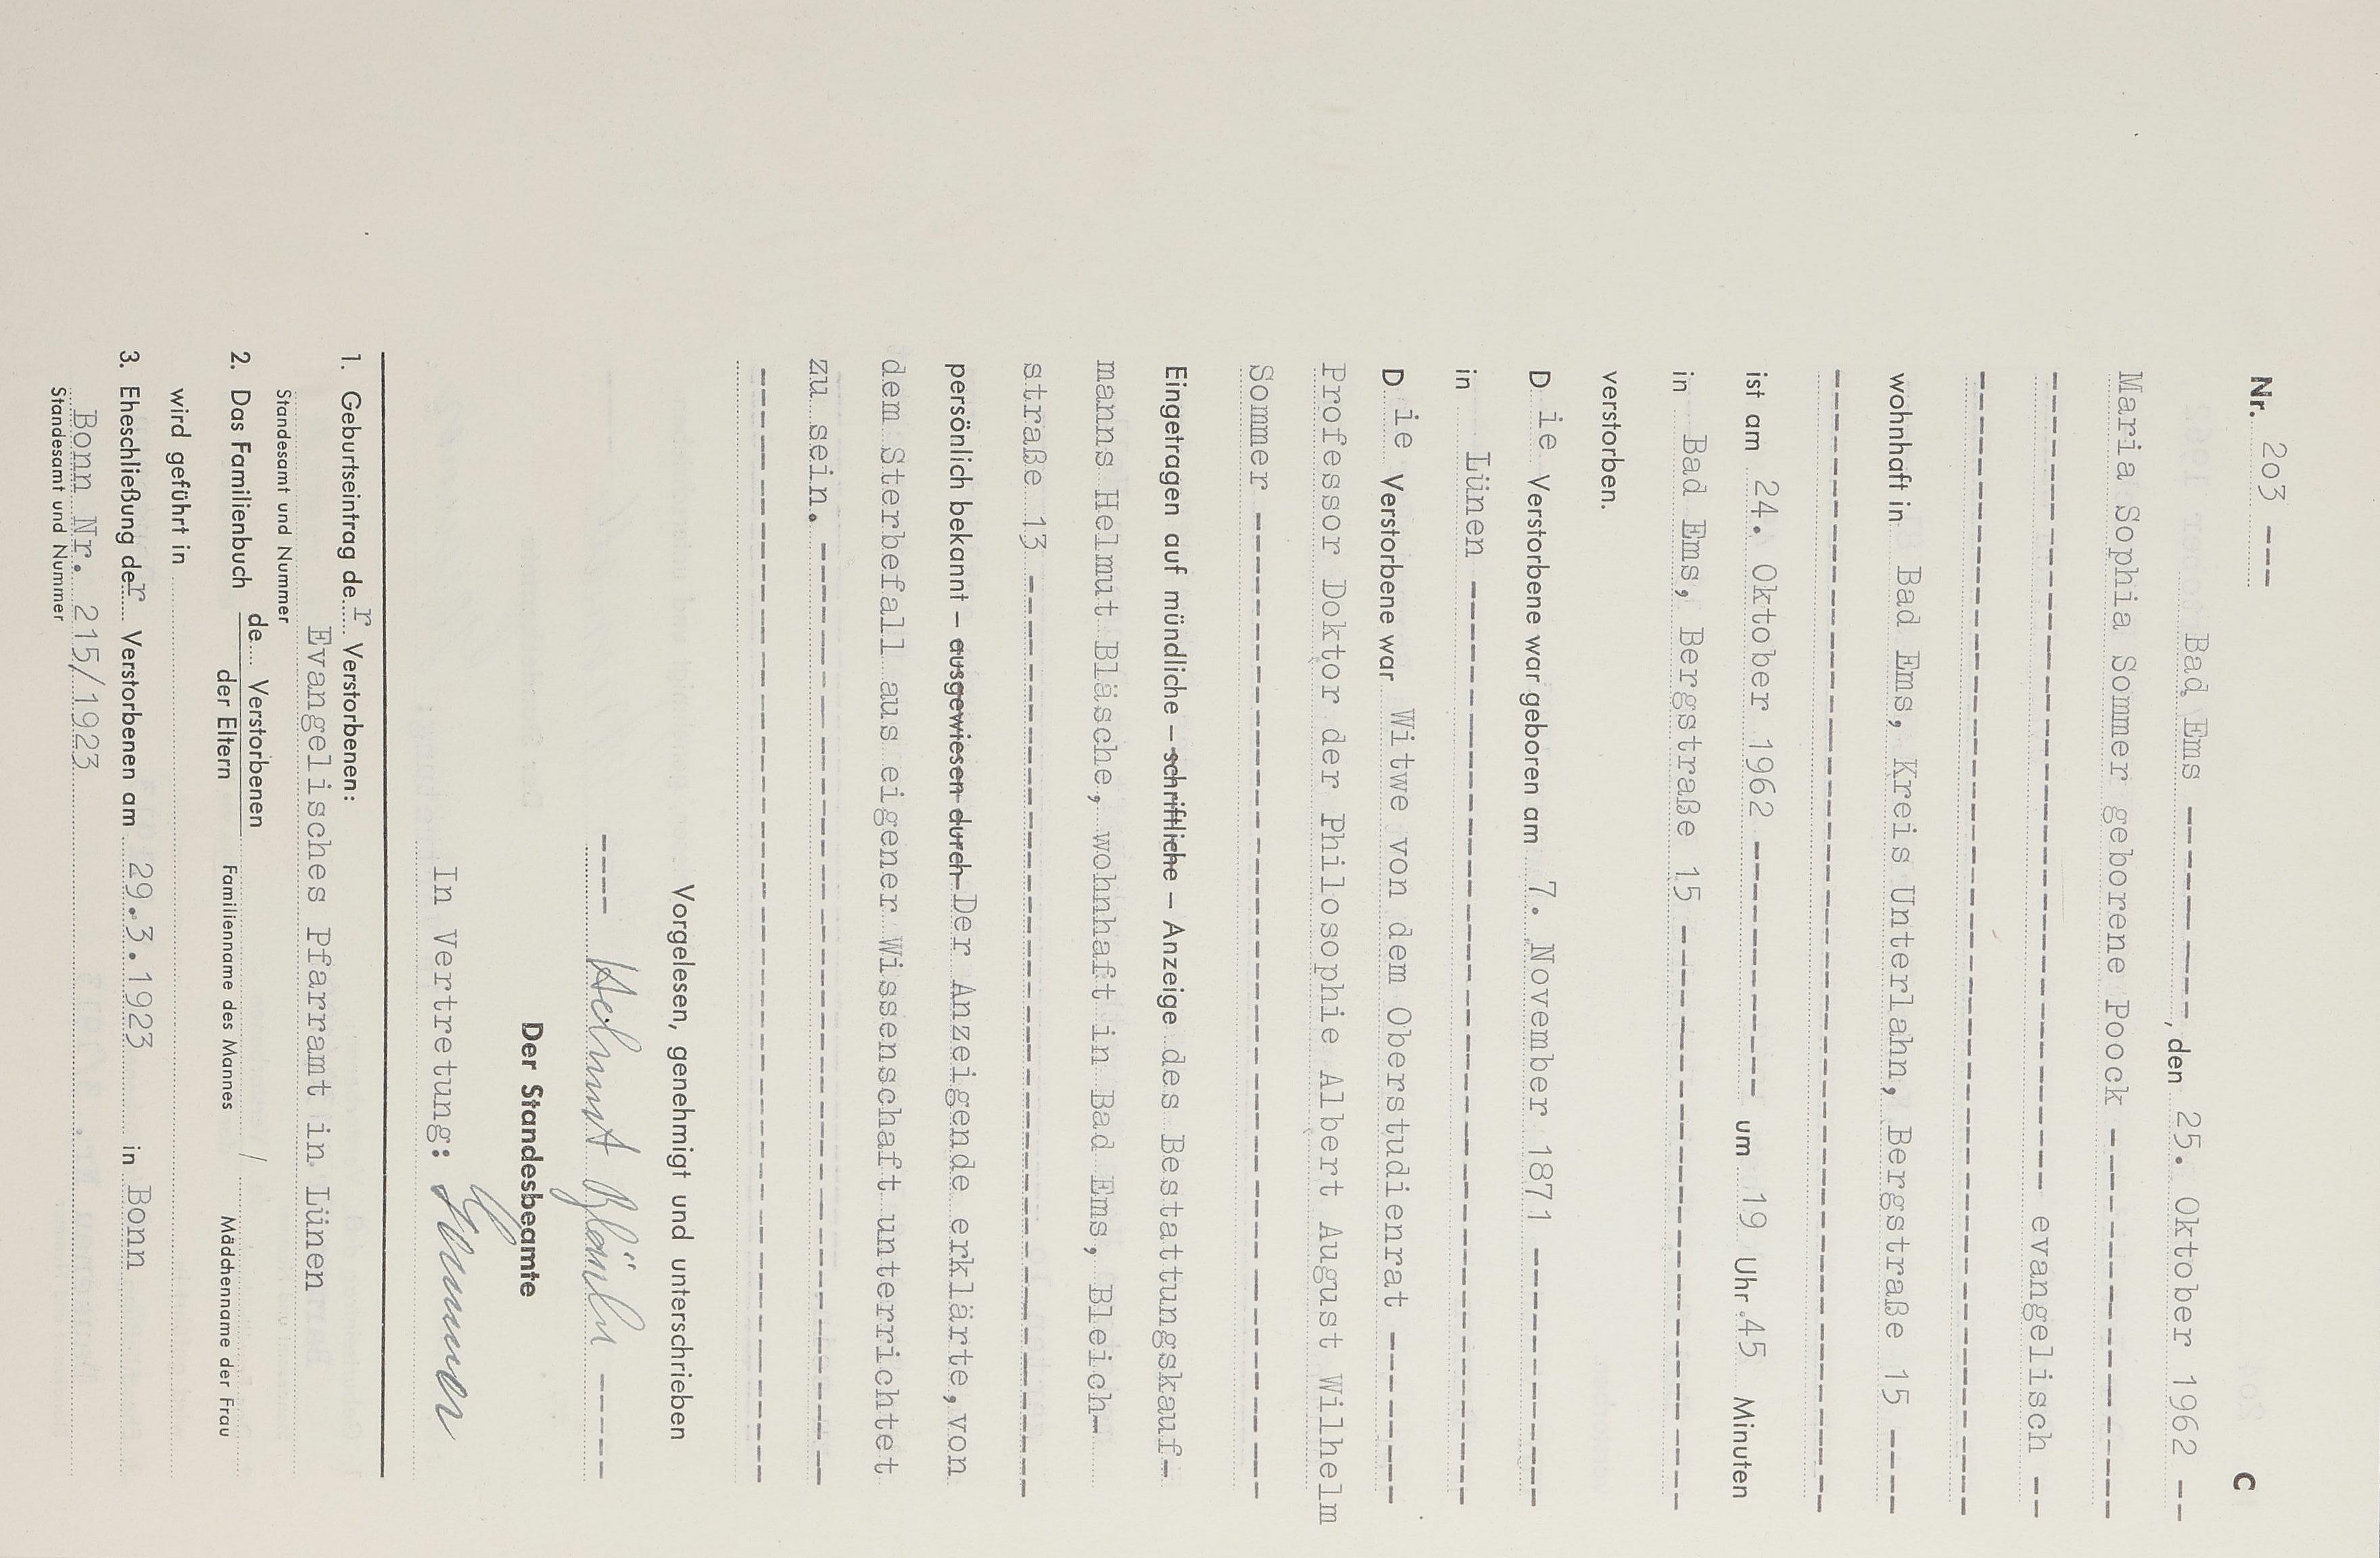 C
Nr. 2o3 ---
Bad Ems ----------, den 25. Oktober 1962 --
Maria Sophia Sommer geborene Poock ----------------
---------------------------------- evangelisch --
------------------------------------------------
wohnhaft in Bad Ems, Kreis Unterlahn, Bergstraße 15 ----
------------------------------------------------
ist am 24. Oktober 1962 ------------ um 19 Uhr 45 Minuten
in Bad Ems, Bergstraße 15 ------------------------
verstorben.
Die Verstorbene war geboren am 7. November 1871 -----------
in Lünen ---------------------------------------
Die Verstorbene war Witwe von dem Oberstudienrat -------
Professor Doktor der Philosophie Albert August Wilhelm
Sommer -----------------------------------------
Eingetragen auf mündliche – schriftliche – Anzeige des Bestattungskauf-
manns Helmut Bläsche, wohnhaft in Bad Ems, Bleich-
straße 13 --------------------------------------
persönlich bekannt – ausgewiesen durch Der Anzeigende erklärte, von
dem Sterbefall aus eigener Wissenschaft unterrichtet
zu sein. ---------------------------------------
------------------------------------------------
Vorgelesen, genehmigt und unterschrieben
---- Helmut Bläsche ----
Der Standesbeamte
In Vertretung:
1. Geburtseintrag der Verstorbenen:
Evangelisches Pfarramt in Lünen
Standesamt und Nummer
2. Das Familienbuch de Verstorbenen
der Eltern Familienname des Mannes / Mädchenname der Frau
wird geführt in
3. Eheschließung der Verstorbenen am 29.3.1923 in Bonn
Bonn Nr. 215/1923
Standesamt und Nummer